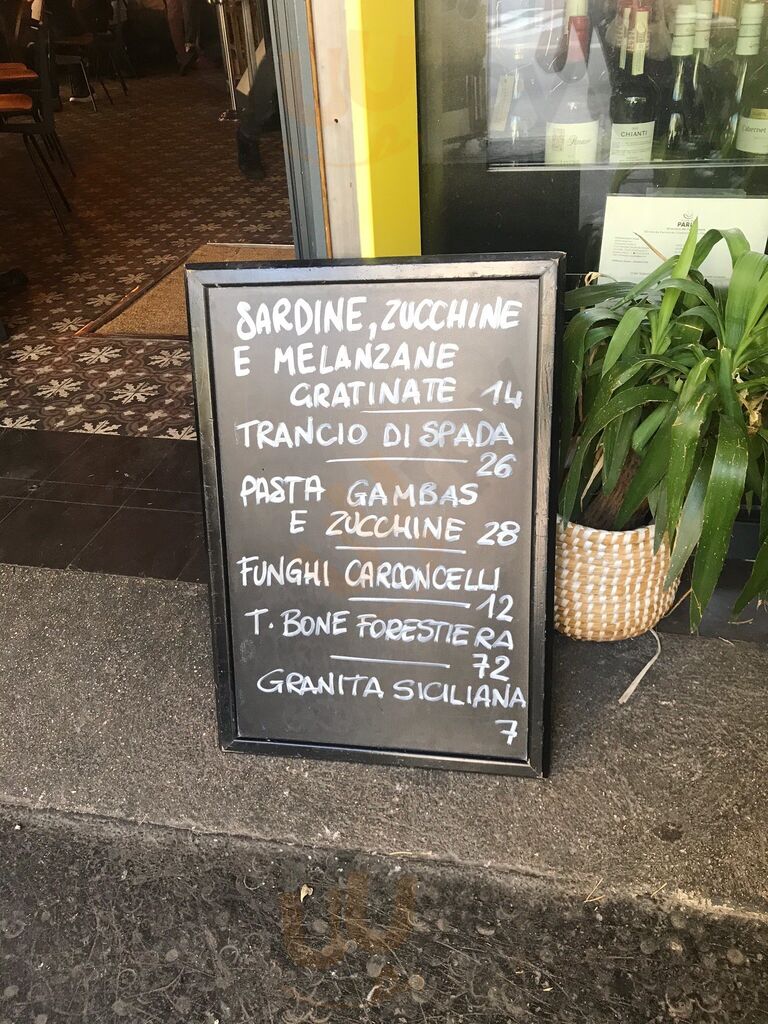 SARDINE, ZUCCHINE
E MELANZANE
GRATINATE 14
TRANCIO DI SPADA
26
PASTA GAMBAS
E ZUCCHINE 28
FUNGHI CARDONCELLI
12
T. BONE FORESTIERA
72
GRANITA SICILIANA
7
CHIANTI
Cabernet